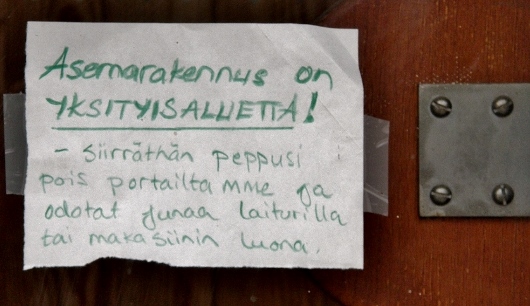 Asemarakennus on
YKSITYISALUETTA!
- Siirräthän peppusi
pois portailtamme ja
odotat junaa laiturilla
tai makasiinin luona.